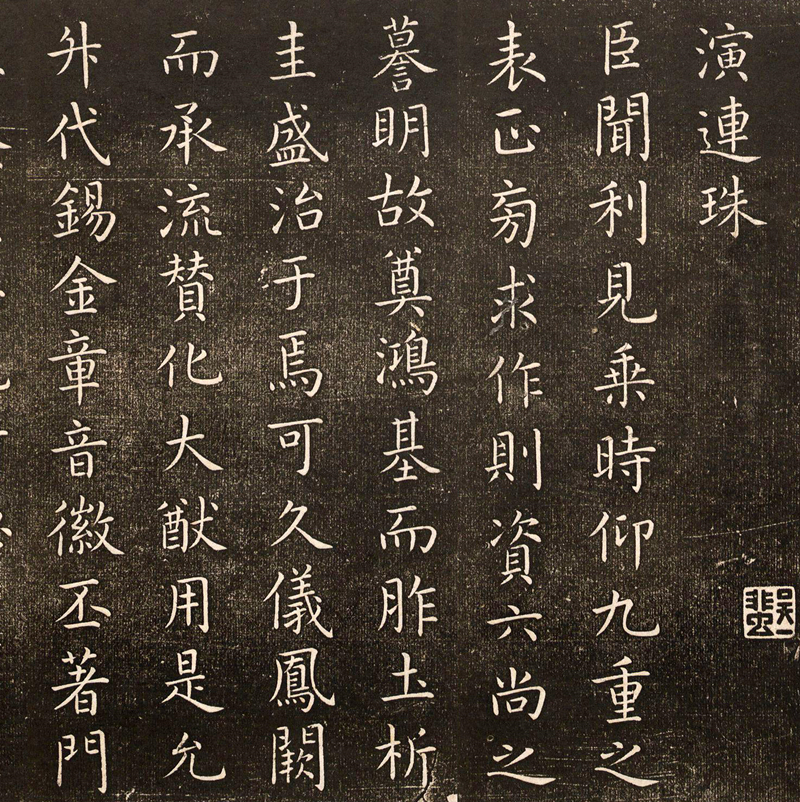 演連珠
臣聞利見乗時仰九重之
表正旁求作則資六尚之
謩明故奠鴻基而胙圡析
圭盛治于焉可久儀鳳闕
而承流賛化大猷用是允
升代錫金章音徽丕著門
吳一蜚